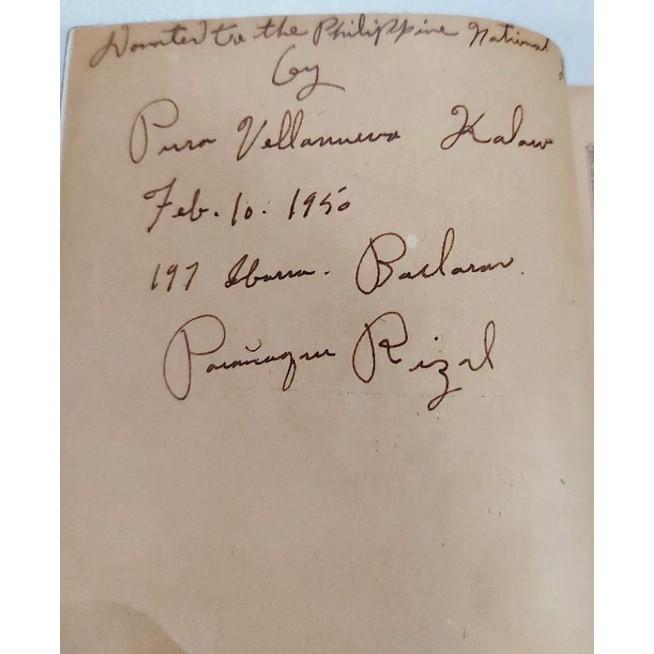 Donated to the Philippine National
by
Pura Villanueva Kalaw
Feb. 10. 1950
197 Ibarra. Baclaran.
Parañaque Rizal